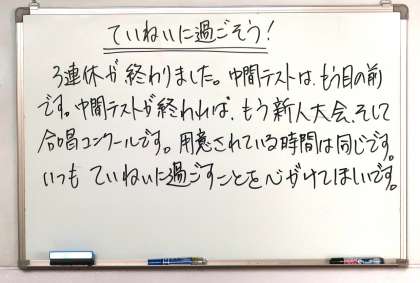 ていねいに過ごそう！
3連休が終わりました。中間テストは、もう目の前
です。中間テストが終われば、もう新人大会、そして
合唱コンクールです。用意されている時間は同じです。
いつもていねいに過ごすことを心がけてほしいです。